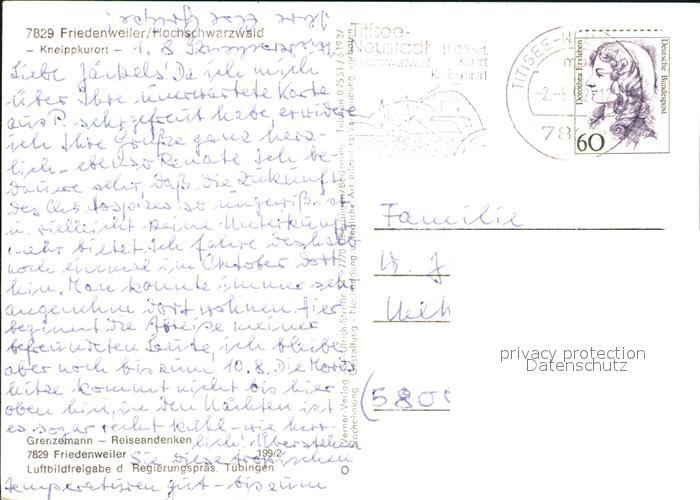 7829 Friedenweiler/Hochschwarzwald
– Kneippkurort –
1. 8.
Liebe Jäckels! Da ich mich
über Ihre unerwartete Karte
aus P. sehr gefreut habe, erwidere
ich Ihre Grüße ganz herz-
lich – ebenso Renate. Ich be-
daure sehr, daß die Zukunft
des Chr. Hospizes so ungewiß ist
u. vielleicht keine Unterkunft
mehr bietet. Ich fahre deshalb
noch einmal im Oktober dort
hin. Man konnte immer sehr
angenehm dort wohnen. Hier
beginnt die Abreise meiner
befreundeten Leute, ich bleibe
aber noch bis zum 10.8. Die
hitze kommt nicht bis hier
oben hin, in den Nächten ist
es sogar recht kühl – wie herr-
lich! Überstehen
Sie diese tropischen
temperaturen gut – bis zum
Grenzemann – Reiseandenken
7829 Friedenweiler 199/2
Luftbildfreigabe d. Regierungspräs. Tübingen
Titisee-
Neustadt
TITISEE-N
78
Dorothea Erxleben
Deutsche Bundespost
60
Familie
W. J
(5800
privacy protection
Datenschutz